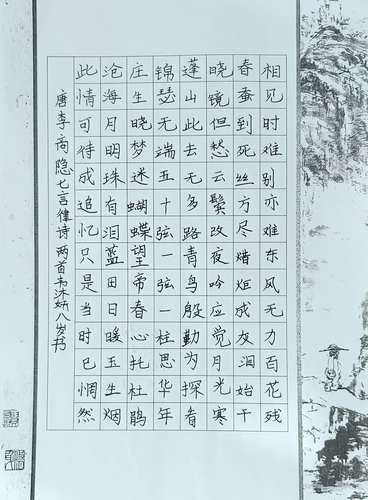 相见时难别亦难东风无力百花残
春蚕到死丝方尽蜡炬成灰泪始干
晓镜但愁云鬓改夜吟应觉月光寒
蓬山此去无多路青鸟殷勤为探看
锦瑟无端五十弦一弦一柱思华年
庄生晓梦迷蝴蝶望帝春心托杜鹃
沧海月明珠有泪蓝田日暖玉生烟
此情可待成追忆只是当时已惘然
唐李商隐七言律诗两首韦沐妍八岁书